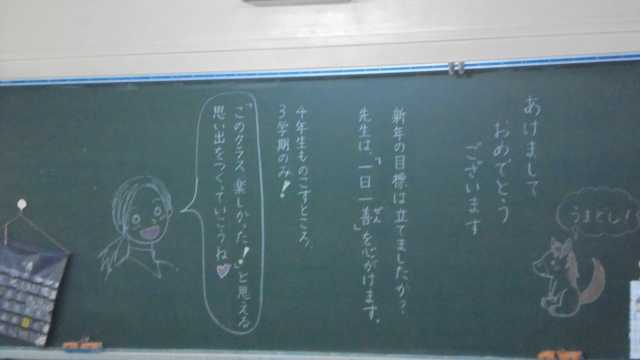 あけまして
おめでとう
ございます
うまどし!
新年の目標は立てましたか?
先生は、「一日一善」を心がけます。
ぜん
4年生ものこすところ、
3学期のみ!
「このクラス楽しかった!」と思える
思い出をつくっていこうね